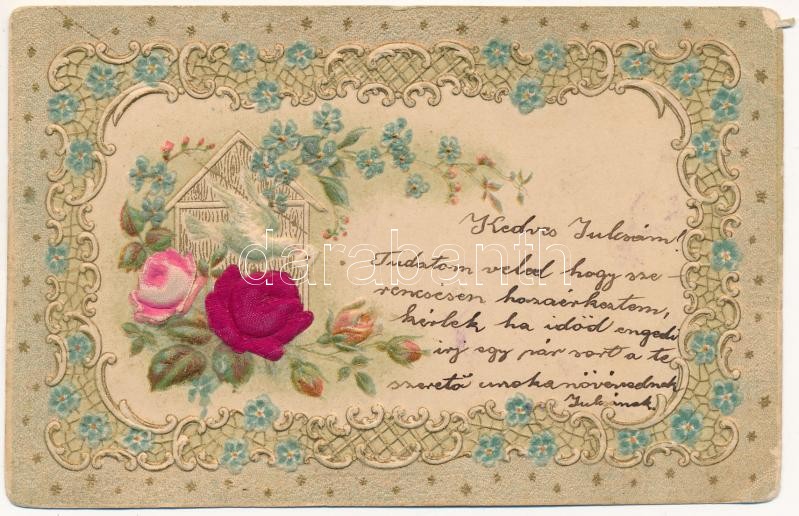 Kedves Julcsám!
Tudatom veled hogy sze-
rencsésen hazaérkeztem,
kérlek ha időd engedi
irj egy pár sort a te
szerető unokanővérednek
Julcsának.
darabanth